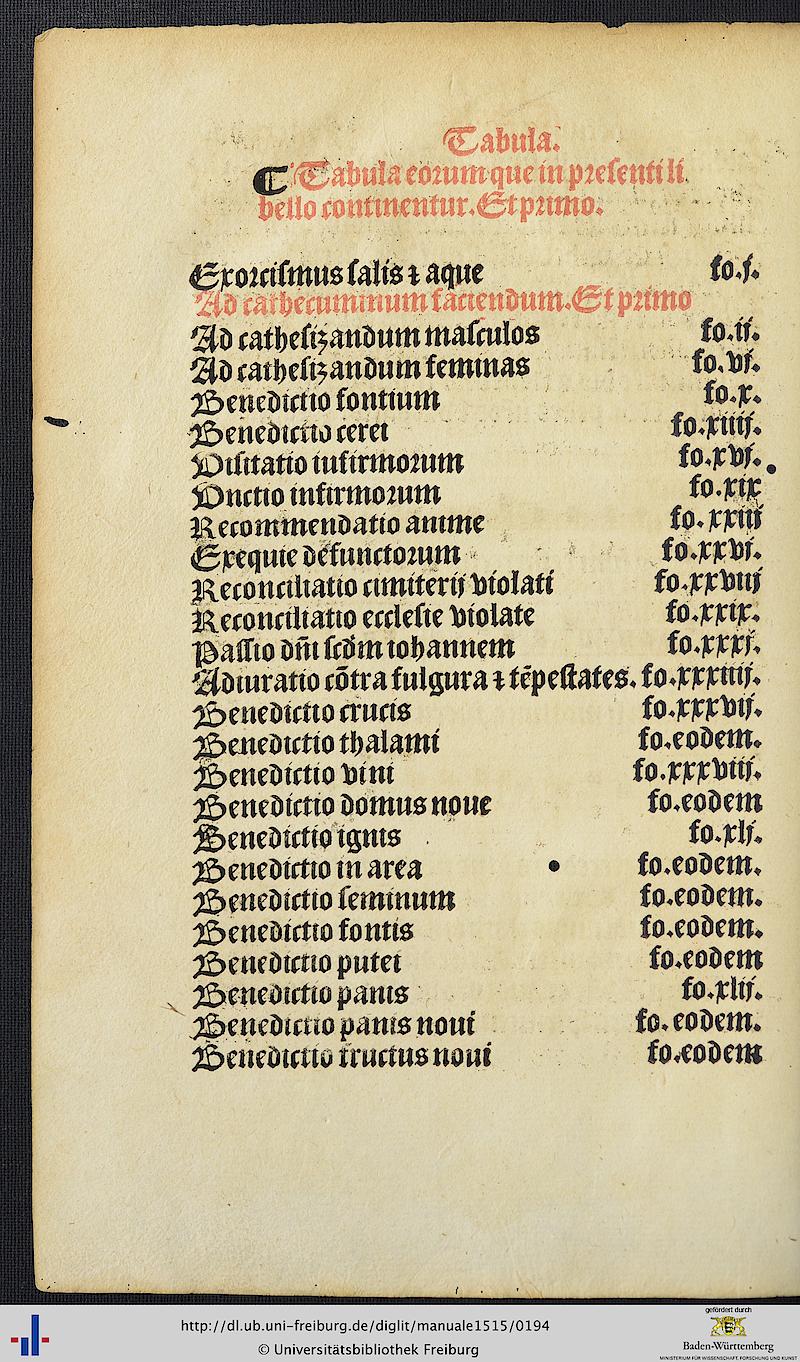 Tabula.
¶ Tabula eorum que in presenti li
bello continentur. Et primo.
Exorcismus salis ⁊ aque fo.j.
Ad cathecuminum faciendum. Et primo
Ad cathesizandum masculos fo.ij.
Ad cathesizandum feminas fo.vj.
Benedictio fontium fo.x.
Benedictio cerei fo.xiiij.
Visitatio infirmorum fo.xvj.
Vnctio infirmorum fo.xix
Recommendatio anime fo.xxiij
Exequie defunctorum fo.xxvj.
Reconciliatio cimiterij violati fo.xxviij
Reconciliatio ecclesie violate fo.xxix.
Passio dñi scdm iohannem fo.xxxj.
Adiuratio cõtra fulgura ⁊ tẽpestates. fo.xxxiiij.
Benedictio crucis fo.xxxvij.
Benedictio thalami fo.eodem.
Benedictio vini fo.xxxviij.
Benedictio domus noue fo.eodem
Benedictio ignis fo.xlj.
Benedictio in area fo.eodem.
Benedictio seminum fo.eodem.
Benedictio fontis fo.eodem.
Benedictio putei fo.eodem
Benedictio panis fo.xlij.
Benedictio panis noui fo.eodem.
Benedictio fructus noui fo.eodem
http://dl.ub.uni-freiburg.de/diglit/manuale1515/0194
© Universitätsbibliothek Freiburg
gefördert durch
Baden-Württemberg
MINISTERIUM FÜR WISSENSCHAFT, FORSCHUNG UND KUNST